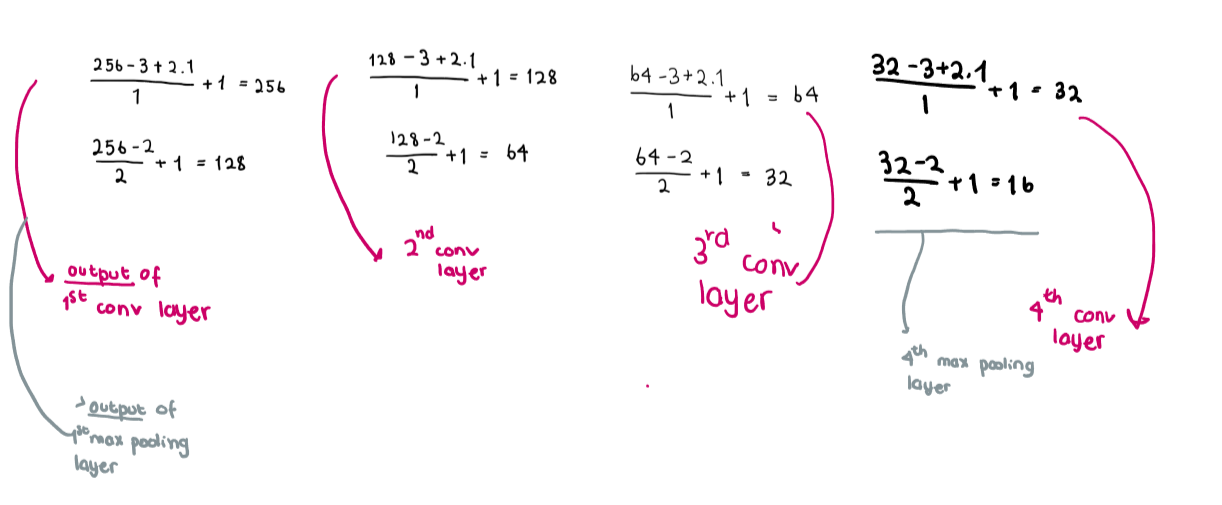 256-3+2.1
1
+1 = 256
256-2
2
+1 = 128
output of
1st conv layer
output of
1st max pooling
layer
128-3+2.1
1
+1 = 128
128-2
2
+1 = 64
2nd conv
layer
64-3+2.1
1
+1 = 64
64-2
2
+1 = 32
3rd conv
layer
32-3+2.1
1
+1 = 32
32-2
2
+1 = 16
4th conv
layer
4th max pooling
layer